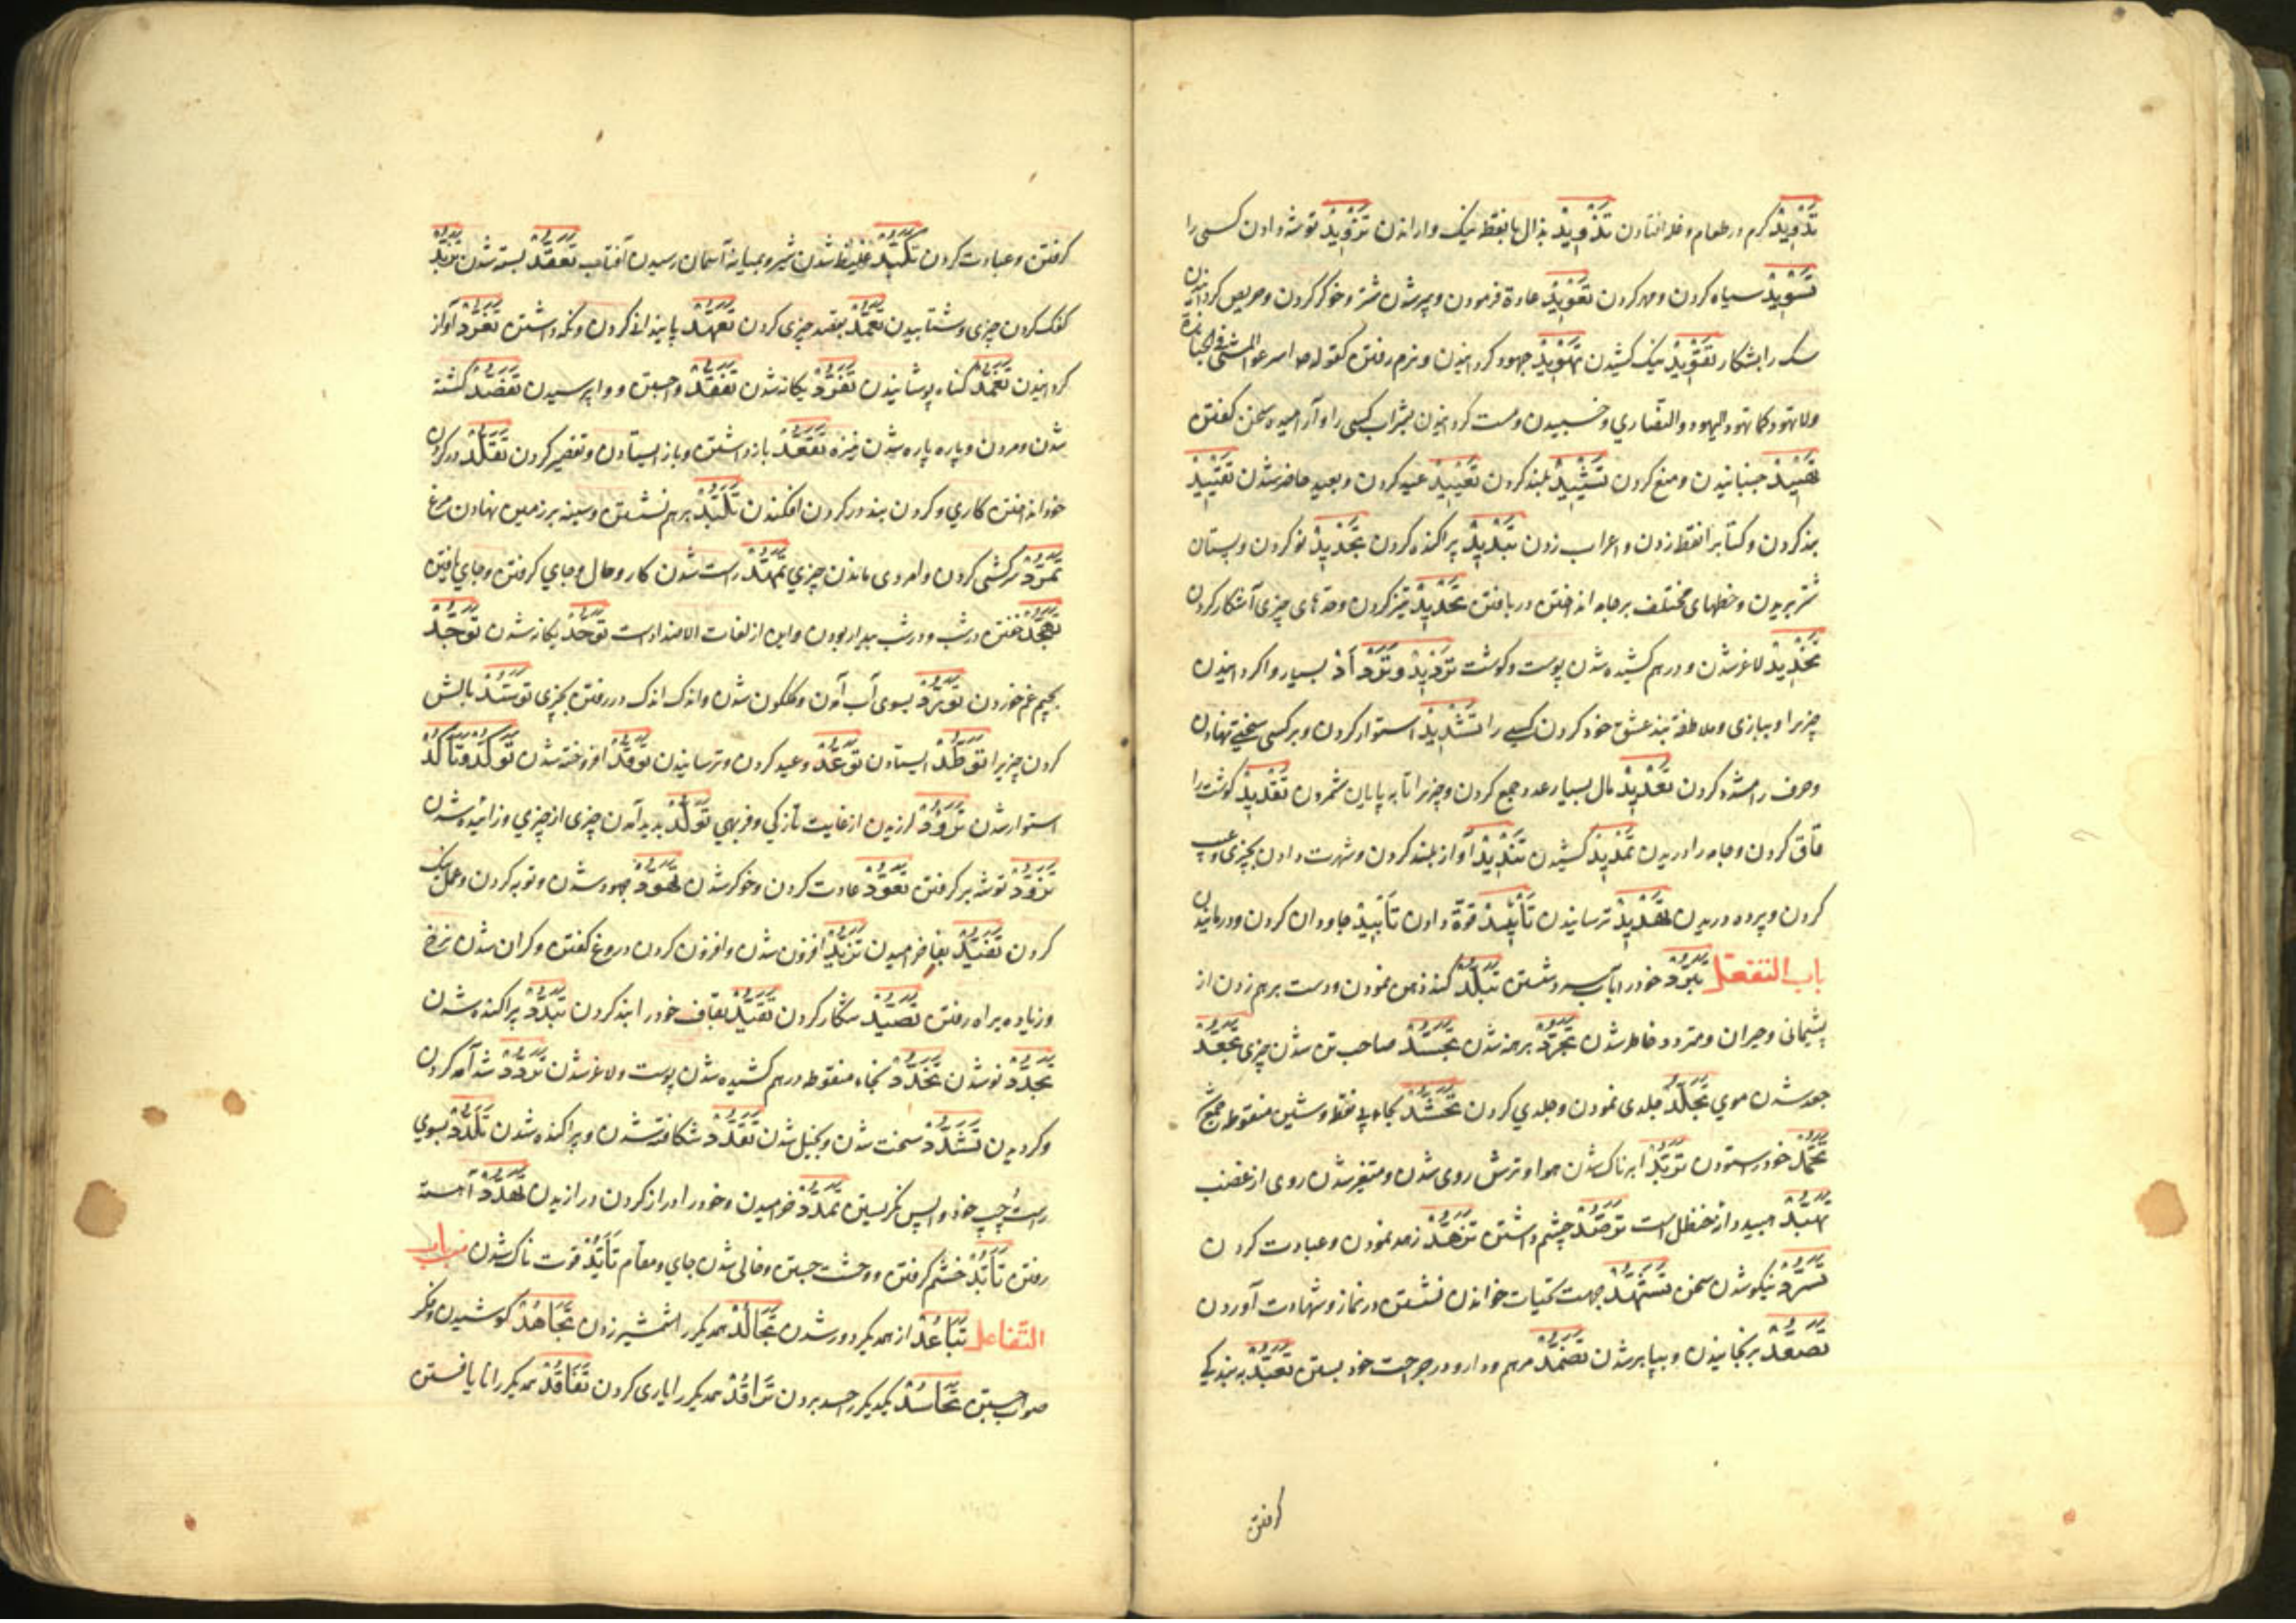 تَدْوِیدْ کرم در طعام و غله افتادن تَذْوِیدْ بذال با نقطه نیک وا راندن تَزْوِیدْ توشه دادن کسی را
تَسْوِیدْ سیاه کردن و مهتر کردن تَعْوِیدْ عادة فرمودن و پیر شدن شتر و خوگر کردن و حریص گردانیدن
سک را بشکار تَقْوِیدْ نیک کشیدن تَهْوِیدْ جهود گردانیدن و نرم رفتن کقوله ص اسرعوا المشی فی الجنازة
ولا تهود کما تهود الیهود والنصاری و خسبیدن و مست گردانیدن شراب کسی را و آرامیده سخن گفتن
تَهْیِیدْ جنبانیدن و منع کردن تَشْیِیدْ بلند کردن تَعْیِیدْ عید کردن و بعید حاضر شدن تَقْیِیدْ
بند کردن و کتابرا نقطه زدن و اعراب زدن تَبْدِیدْ پراکنده کردن تَجْدِیدْ نو کردن و پستان
شتر بریدن و خطهای مختلف بر جامه انداختن در بافتن تَحْدِیدْ تیز کردن و حدهای چیزی آشکار کردن
تَخْدِیدْ لاغر شدن و درهم کشیده شدن پوست و گوشت تَرْدِیدْ وَتَرْدَادْ بسیار وا گردانیدن
چیزیرا و ببازی و ملاطفه بند عشق خود کردن کسی را تَشْدِیدْ استوار کردن و بر کسی سختی نهادن
و حرف را مشدد کردن تَعْدِیدْ مال بسیار عدد جمع کردن و چیزیرا تا به پایان شمردن تَقْدِیدْ گوشت را
قاق کردن و جامه را دریدن تَمْدِیدْ کشیدن تَنْدِیدْ آواز بلند کردن و شهرت دادن بچیزی و عیب
کردن و پرده دریدن تَهْدِیدْ ترسانیدن تَأْیِیدْ قوة دادن تَأْبِیدْ جاودان کردن و در مانیدن
باب التفعّل تَبَرُّدْ خود را بآب سرد شستن تَبَلُّدْ کند ذهن نمودن و دست برهم زدن از
پشیمانی و حیران و متردد خاطر شدن تَجَرُّدْ برهنه شدن تَجَسُّدْ صاحب تن شدن چیزی تَجَعُّدْ
جعد شدن موی تَجَلُّدْ جلدی نمودن و جلدی کردن تَحَشُّدْ بحاء بی نقطه و شین منقوطه جمع شدن
تَحَمُّدْ خود را ستودن تَرَبُّدْ ابرناک شدن هوا و ترش روی شدن و متغیر شدن روی از غضب
تَهَبُّدْ هبید دانه حنظل است تَرَصُّدْ چشم داشتن تَزَهُّدْ زهد نمودن و عبادت کردن
تَسَرُّدْ نیکو شدن سخن تَشَهُّدْ جهت تحیات خواندن نشستن در نماز و شهادت آوردن
تَصَعُّدْ برنجانیدن و ببالا بر شدن تَضَمُّدْ مرهم و دارو در جراحت خود بستن تَعَبُّدْ به بندگی
گرفتن
گرفتن و عبادت کردن تَکَبُّدْ غلیظ شدن شیر و بمیانه آسمان رسیدن آفتاب تَعَقُّدْ بسته شدن تَزَبُّدْ
کفک کردن چیزی و شتابیدن تَعَمُّدْ بقصد چیزی کردن تَعَهُّدْ پایندانی کردن و نکه داشتن تَغَرُّدْ آواز
گردانیدن تَغَمُّدْ گناه پوشانیدن تَفَرُّدْ یکانه شدن تَفَقُّدْ وا جستن و وا پرسیدن تَقَصُّدْ کشته
شدن و مردن و پاره پاره شدن نیزه تَقَعُّدْ باز داشتن و باز ایستادن و تقصیر کردن تَقَلُّدْ در گردن
خود انداختن کاری و گردن بند در گردن افکندن تَلَبُّدْ برهم نشستن و سینه بر زمین نهادن مرغ
تَمَرُّدْ سرکشی کردن و امردی ماندن چیزی تَمَهُّدْ راست شدن کار و حال و جای گرفتن و جای یافتن
تَهَجُّدْ خفتن در شب و در شب بیدار بودن و این از لغات الاضداد است تَوَحُّدْ یکانه شدن تَوَجُّدْ
بجیم غم خوردن تَوَرُّدْ بسوی آب آمدن و گلگون شدن و اندک اندک در رفتن بچیزی تَوَسُّدْ بالش
کردن چیزیرا تَوَطُّدْ ایستادن تَوَعُّدْ وعید کردن و ترسانیدن تَوَقُّدْ افروخته شدن تَوَکُّدْ وَتَأَکُّدْ
استوار شدن تَرَؤُّدْ لرزیدن از غایت نازکی و فربهی تَوَلُّدْ پدید آمدن چیزی از چیزی و زائیده شدن
تَزَوُّدْ توشه بر گرفتن تَعَوُّدْ عادت کردن و خوگر شدن تَهَوُّدْ جهود شدن و توبه کردن و عمل نیک
کردن تَفَیُّدْ بفا خرامیدن تَزَیُّدْ افزون شدن و افزون کردن دروغ گفتن و گران شدن نرخ
و زیاده براه رفتن تَصَیُّدْ شکار کردن تَقَیُّدْ بقاف خود را بند کردن تَبَدُّدْ پراکنده شدن
تَجَدُّدْ نو شدن تَخَدُّدْ بخاء منقوطه درهم کشیده شدن پوست و لاغر شدن تَرَدُّدْ شد آمد کردن
و گردیدن تَشَدُّدْ سخت شدن و بخیل شدن تَقَدُّدْ شکافته شدن و پراکنده شدن تَلَدُّدْ بسوی
راست چپ خود واپس نگریستن تَمَدُّدْ خرامیدن و خود را دراز کردن و درازیدن تَهَدُّدْ آهسته
رفتن تَأَبُّدْ خشم گرفتن و وحشت جستن و خالی شدن جای و مقام تَأَیُّدْ قوت ناک شدن من باب
التّفاعل تَبَاعُدْ از همدیگر دور شدن تَجَالُدْ همدیگر را شمشیر زدن تَجَاهُدْ کوشیدن و فکر
صواب جستن تَحَاسُدْ یکدیگر را حسد بردن تَرَافُدْ همدیگر را یاری کردن تَفَاقُدْ همدیگر را نایافتن